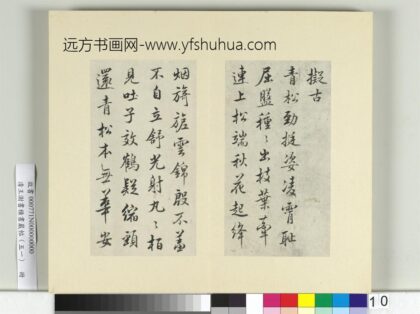 远方书画网-www.yfshuhua.com
擬古
青松勁挺姿凌霄恥
屈盤種〻出枝葉牽
連上松端秋花起絳
烟旖旎雲錦殷不羞
不自立舒光射丸〻柏
見吐子效鶴疑縮頸
還青松本無華安
故書 000771N000000000
10